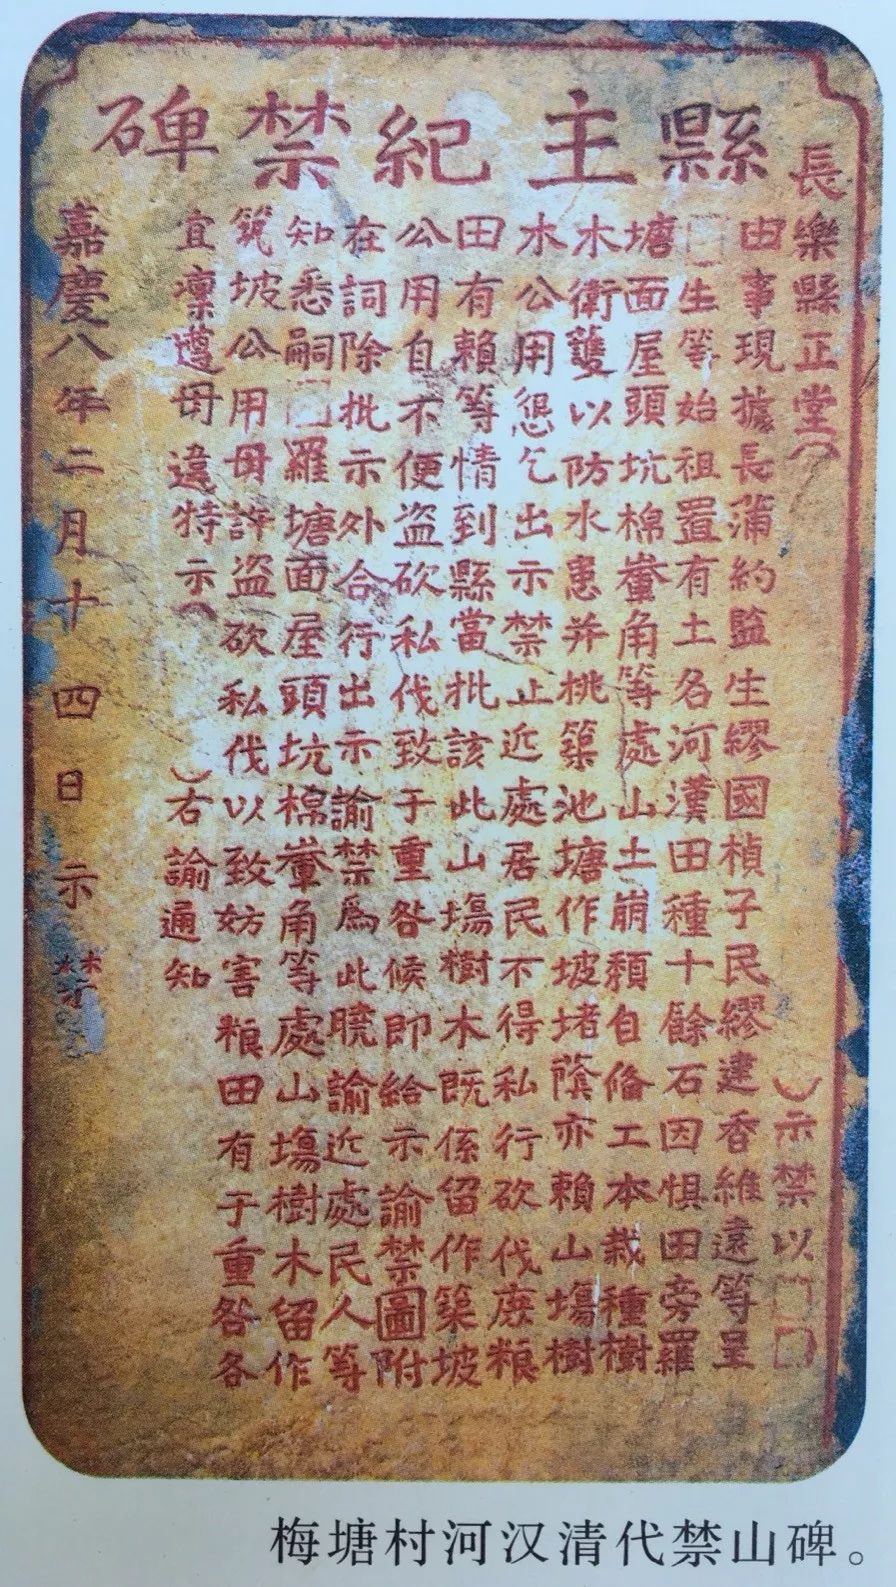 縣主紀禁碑
長樂縣正堂 示禁以
由事現據長蒲約監生繆國楨子民繆建香維遠等呈
生等始祖置有土名河漢田種十餘石因惧田旁羅
塘面屋頭坑棉輋角等處山土崩頹自俻工本栽種樹
木衛護以防水患并桃築池塘作坡堵蔭亦賴山塲樹
木公用懇乞出示禁止近處居民不得私行砍伐庻粮
田有賴等情到縣當批該此山塲樹木既係留作築坡
公用自不便盜砍私伐致于重咎候即給示諭禁圖附
在詞除批示外合行出示諭禁為此曉諭近處民人等
知悉嗣 羅塘面屋頭坑棉輋角等處山塲樹木留作
筑坡公用毋許盜砍私伐以致妨害粮田有于重咎各
宜凛遵毋違特示 右諭通知
嘉慶八年二月十四日示
梅塘村河汉清代禁山碑。